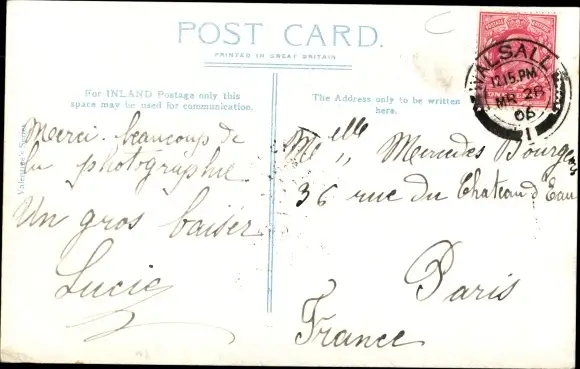 POST CARD.
PRINTED IN GREAT BRITAIN
For INLAND Postage only this
space may be used for communication.
The Address only to be written
here.
Valentine's Series
WALSALL
12.15.PM
MR 26
06
71
Merci beaucoup de
la photographie
Un gros baiser
Lucie
Melle Mercedes
36 rue du Chateau d'Eau
Paris
France